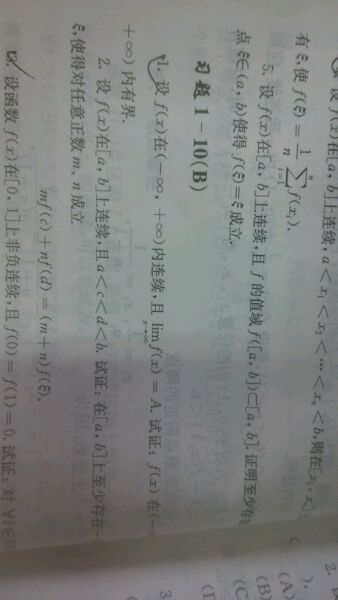 设 f(x)在[a, b]上连续, a < x₁ < x₂ < ⋯ < xₙ < b, 则在[x₁, xₙ]
有 ξ, 使 f(ξ) = \frac{1}{n} \sum_{i=1}^{n} f(xᵢ).
5. 设 f(x)在[a, b]上连续, 且 f 的值域 f([a, b])⊂[a, b]. 证明至少存在
点 ξ∈(a, b)使得 f(ξ) = ξ 成立.
习题 1-10(B)
1. 设 f(x)在(-∞, +∞)内连续, 且 \lim_{x→∞} f(x) = A. 试证: f(x)在(-
+∞)内有界.
2. 设 f(x)在[a, b]上连续, 且 a < c < d < b. 试证: 在[a, b]上至少存在一
ξ, 使得对任意正数 m、n 成立
mf(c) + nf(d) = (m + n)f(ξ).
设函数 f(x)在[0, 1]上非负连续, 且 f(0) = f(1) = 0. 试证: 对 ∀l∈(
2.
(A)
(B)
(C
(D
3